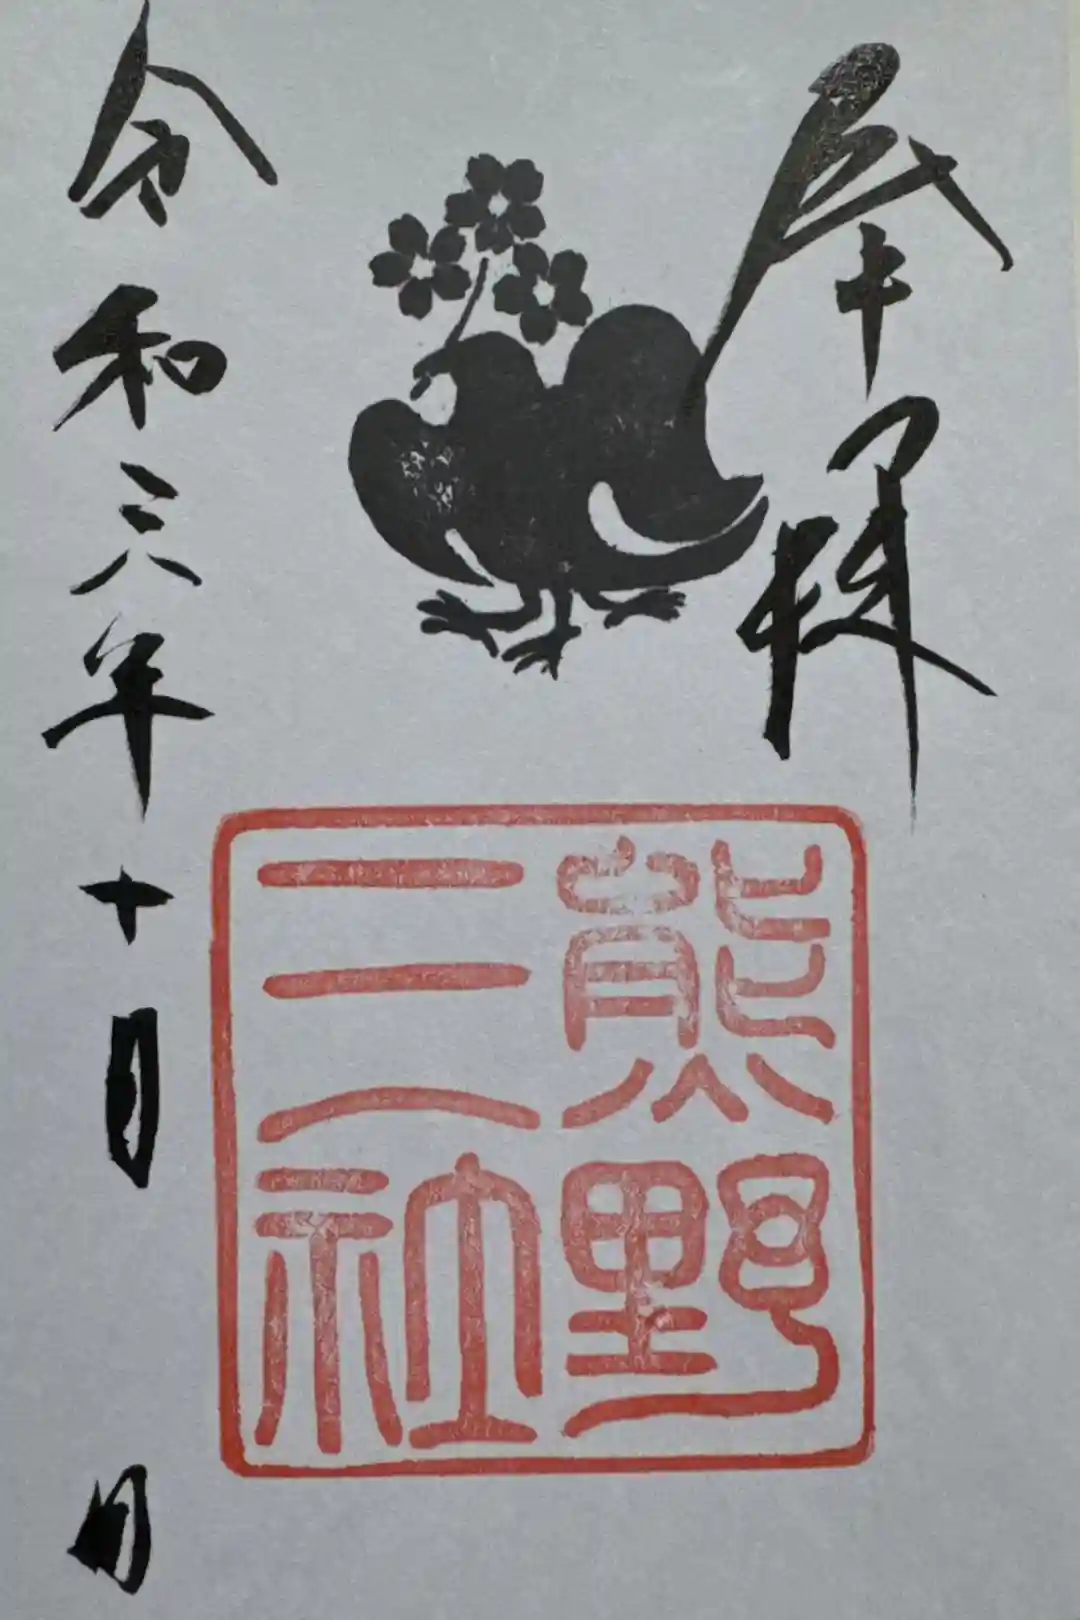 奉拝
熊野
三社
令和六年十月 日